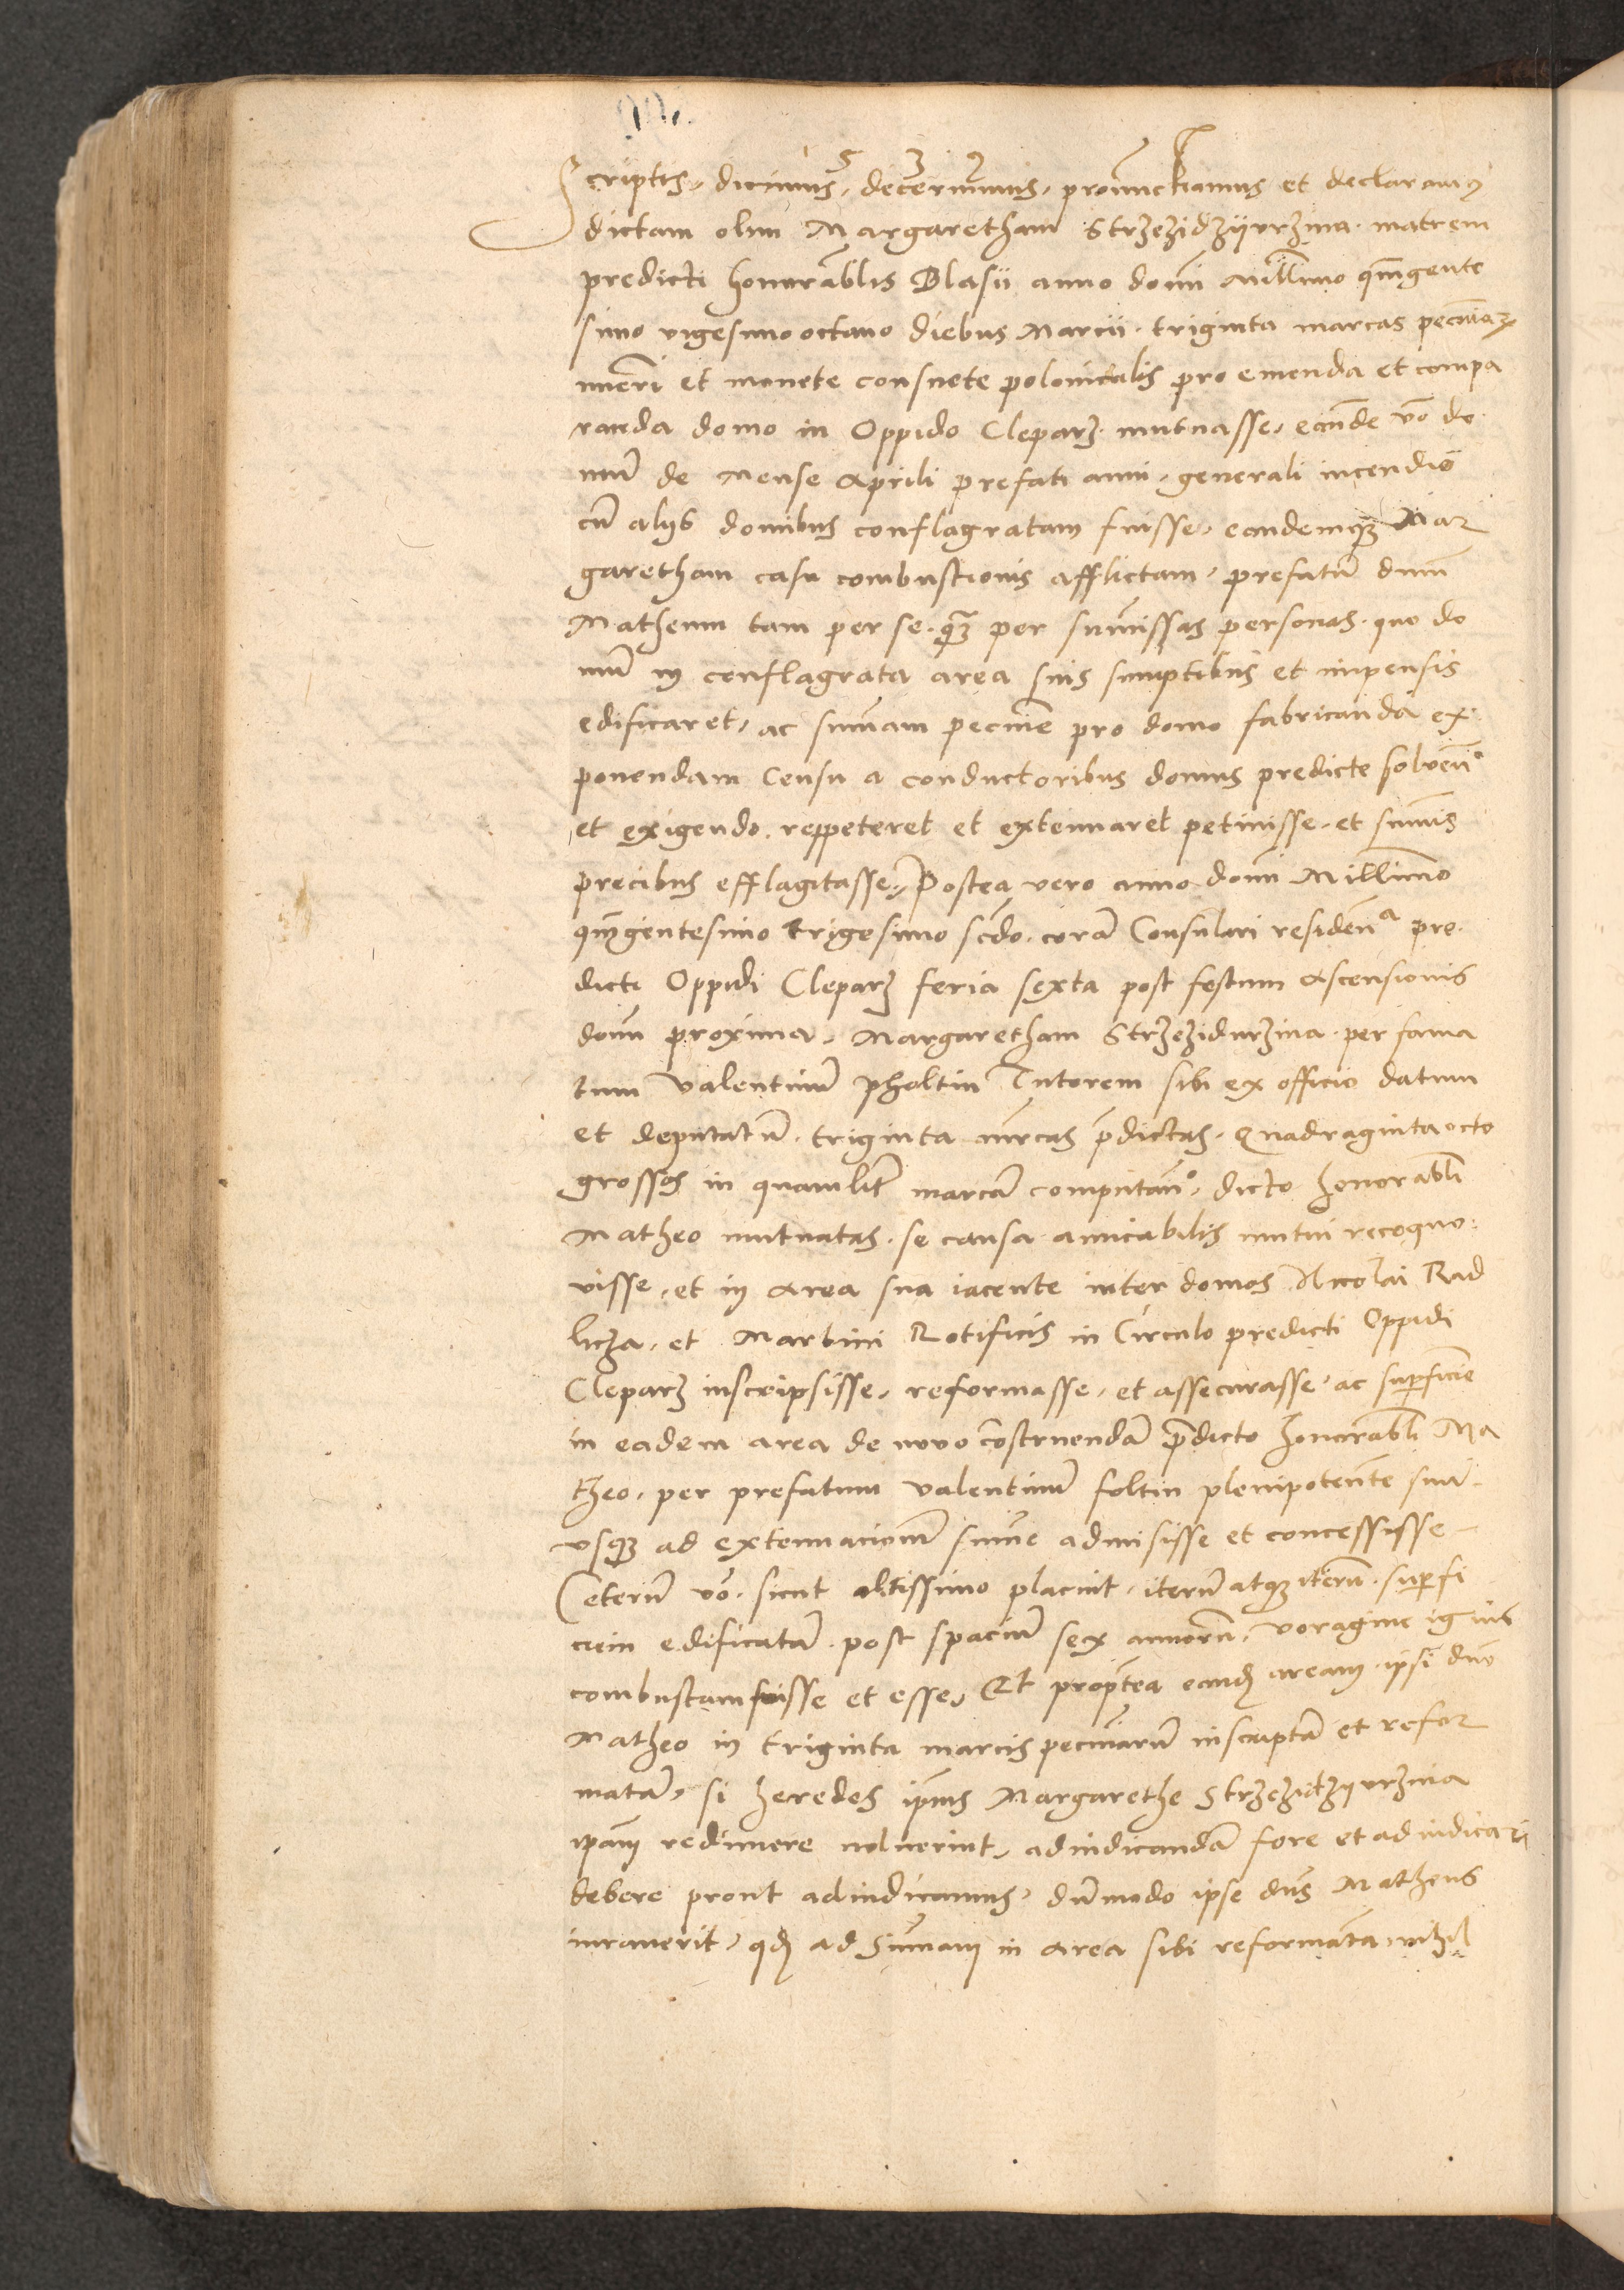 Scriptis, dicimus, decernimus, pronunctiamus et declaramus
dictam olim Margaretham Strzezidzijvrzina matrem
predicti honorablis Blasii anno domī Millimo qīngente
simo vigesimo octauo diebus Marcii triginta marcas pecuniaꝝ
nūeri et monete consuete polonicalis pro emenda et compa
randa domo in Oppido Cleparz mutuasse, eandē vō do
mū de Mense Aprili prefati anni, generali incendio
cū alijs domibus conflagratam fuisse, eandemqꝫ Mar
garetham casu combustionis afflictam, prefatū dnm̄
Matheum tam per se qꝫ per sum̄issas personas quo do
mū in conflagrata area suis sumptibus et impensis
edificaret, ac sum̄am pecunie pro domo fabricanda ex
ponendam Censu a conductoribus domus predicte soluen̄°
et exigendo reppeteret et extenuaret petiuisse et sum̄is
precibus efflagitasse, Postea vero anno domī Millimo
quīgentesimo trigesimo scdo corā Consulari residen̄a pre
dicti Oppidi Cleparz feria sexta post festum Ascensionis
domī proxima, Margaretham Strzezidurzina per fama
tum Valentinū Pholtin Tutorem sibi ex officio datum
et deputatū triginta mrcas p̄dictas Quadraginta octo
grossos in quamlit marcā computan̄°, dicto honorabli
Matheo mutuatas se causa amicabilis mutui recogno
uisse, et in Area sua iacente inter domos Nicolai Rad
licza, et Martini Rotificis in Circulo predicti Oppidi
Cleparz inscripsisse, reformasse, et assecurasse, ac superficiē
in eadem area de nouo cōstruendā p̄dicto honorabli Ma
theo, per prefatum Valentinū foltin plenipotentē suū
vsqꝫ ad extenuacionē sum̄e admisisse et concessisse
Ceterū vō sicut altissimo placuit, iterū atqꝫ iterū superfi
ciem edificatā post spaciū sex annorū, voragine ignis
combustam fuisse et esse, Et proptea eandꝫ aream ipsi dnō
Matheo in triginta marcis pecuniarū inscriptā et refor
matā, si heredes ipius Margarethe Strzezidzijvrzina
ipam redimere noluerint, adiudicandā fore et adiudicari
debere prout adiudicamus, dūmodo ipse dns Matheus
iurauerit, qd ad Sum̄am in Area sibi reformatā nihil